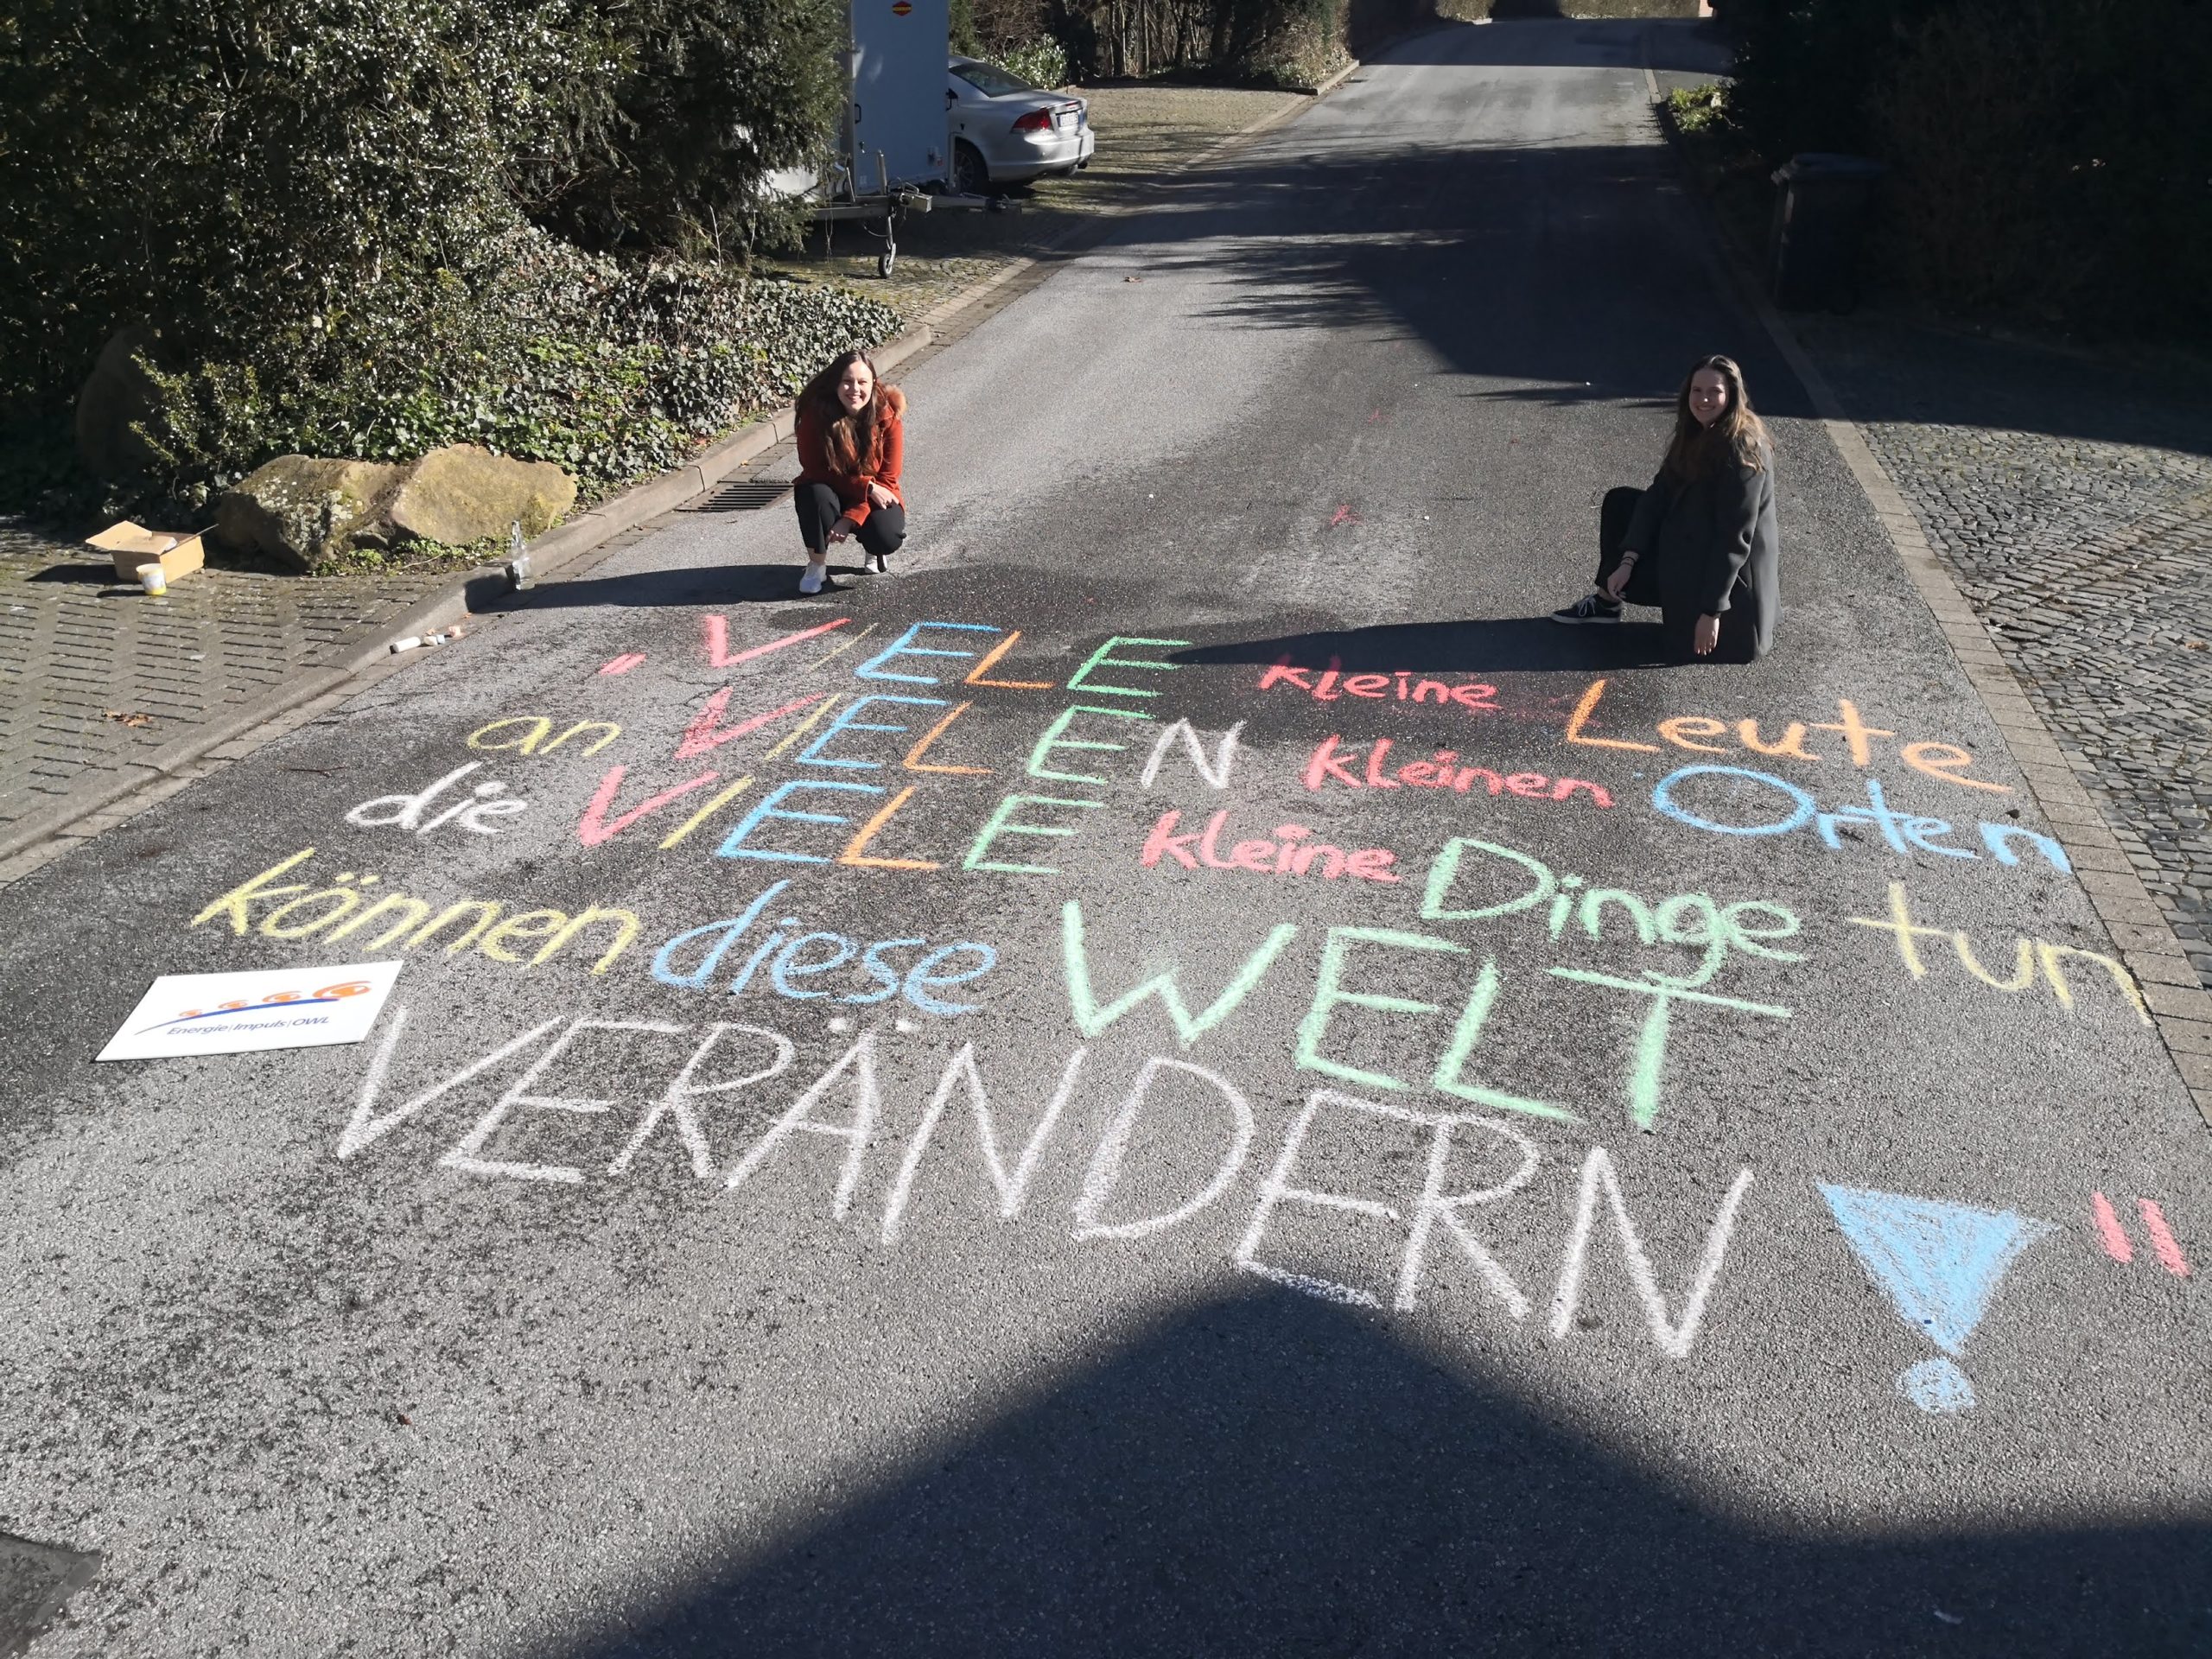 "VIELE kleine Leute
an VIELEN kleinen Orten
die VIELE kleine Dinge tun
können diese WELT
VERÄNDERN!"
Energie|Impuls|OWL